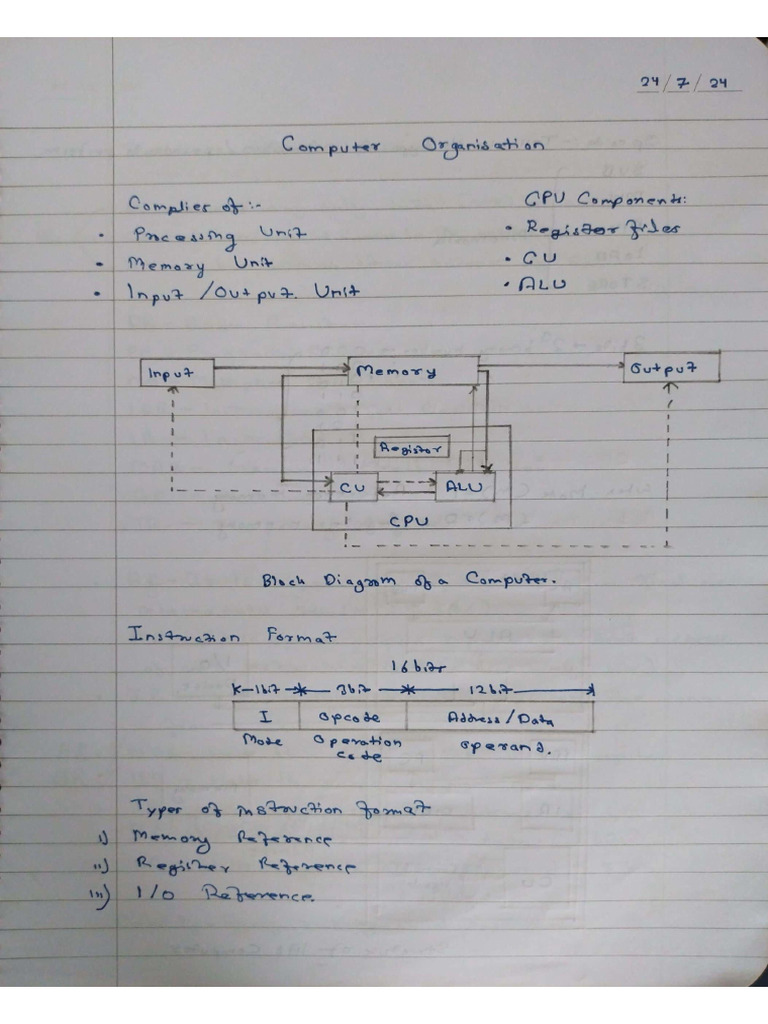 24/7/24
Computer Organisation
Complies of:-
• Processing Unit
• Memory Unit
• Input/Output Unit
CPU Components:
• Register files
• CU
• ALU
Input
Memory
Output
Register
CU
ALU
CPU
Block Diagram of a Computer.
Instruction Format
16bits
1bit 3bit 12bit
I Opcode Address/Data
Mode Operation code operand.
Types of instruction format
i) Memory Reference
ii) Register Reference
iii) I/O Reference.